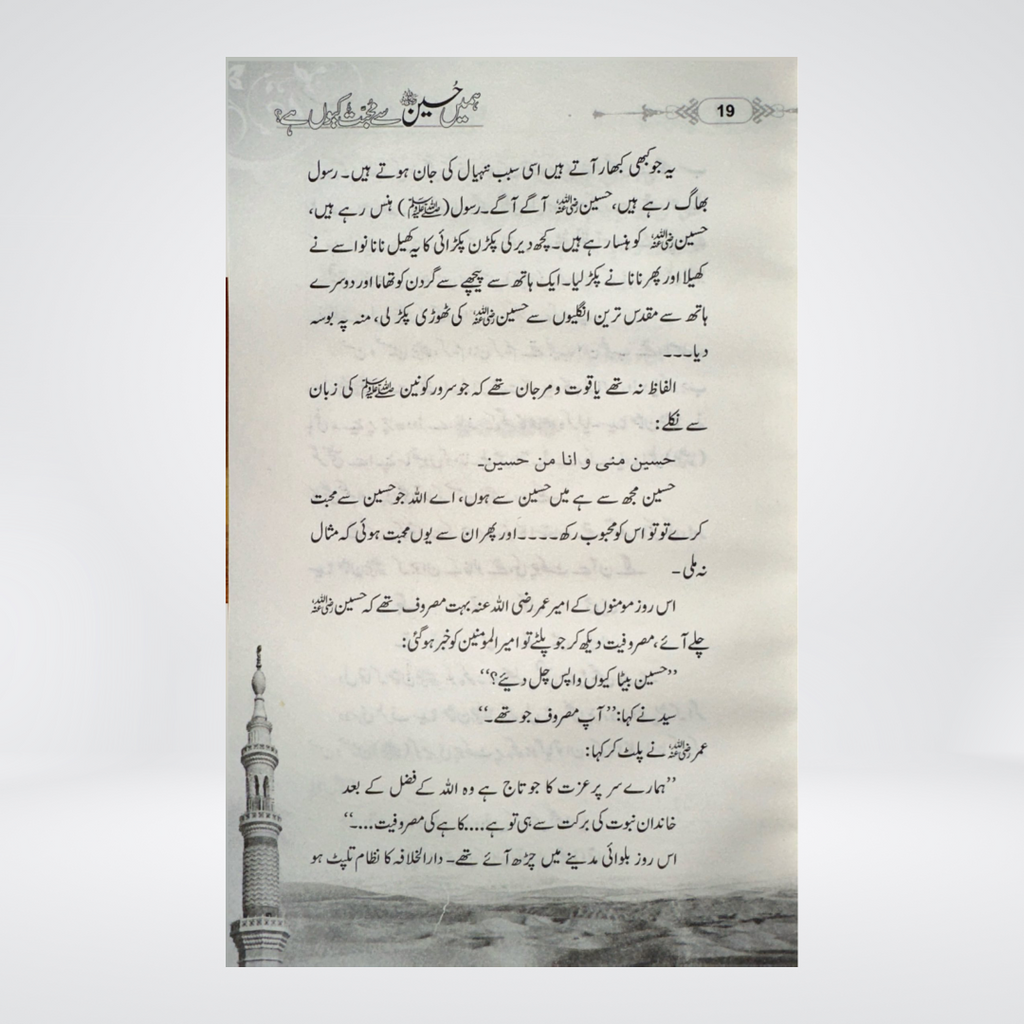 ہمیں حسینؓ سے محبت کیوں ہے؟
19
یہ جو کبھی کبھار آتے ہیں اسی سبب ننہیال کی جان ہوتے ہیں۔ رسول
بھاگ رہے ہیں، حسین رضی اللہ عنہ آگے آگے۔ رسول (ﷺ) ہنس رہے ہیں،
حسین رضی اللہ عنہ کو ہنسا رہے ہیں۔ کچھ دیر کی پکڑن پکڑائی کا یہ کھیل نانا نواسے نے
کھیلا اور پھر نانا نے پکڑ لیا۔ ایک ہاتھ سے پیچھے سے گردن کو تھاما اور دوسرے
ہاتھ سے مقدس ترین انگلیوں سے حسین رضی اللہ عنہ کی ٹھوڑی پکڑ لی، منہ پہ بوسہ
دیا۔۔۔
الفاظ نہ تھے یاقوت و مرجان تھے کہ جو سرور کونین ﷺ کی زبان
سے نکلے:
حسین منی و انا من حسین۔
حسین مجھ سے ہے میں حسین سے ہوں، اے اللہ جو حسین سے محبت
کرے تو تو اس کو محبوب رکھ۔۔۔۔۔اور پھر ان سے یوں محبت ہوئی کہ مثال
نہ ملی۔
اس روز مومنوں کے امیر عمر رضی اللہ عنہ بہت مصروف تھے کہ حسین رضی اللہ عنہ
چلے آئے، مصروفیت دیکھ کر جو پلٹے تو امیر المومنین کو خبر ہو گئی:
’’حسین بیٹا کیوں واپس چل دیئے؟‘‘
سید نے کہا: ’’آپ مصروف جو تھے۔‘‘
عمر رضی اللہ عنہ نے پلٹ کر کہا:
’’ہمارے سر پر عزت کا جو تاج ہے وہ اللہ کے فضل کے بعد
خاندان نبوت کی برکت سے ہی تو ہے....کاہے کی مصروفیت....‘‘
اس روز بلوائی مدینے میں چڑھ آئے تھے۔ دارالخلافہ کا نظام تلپٹ ہو